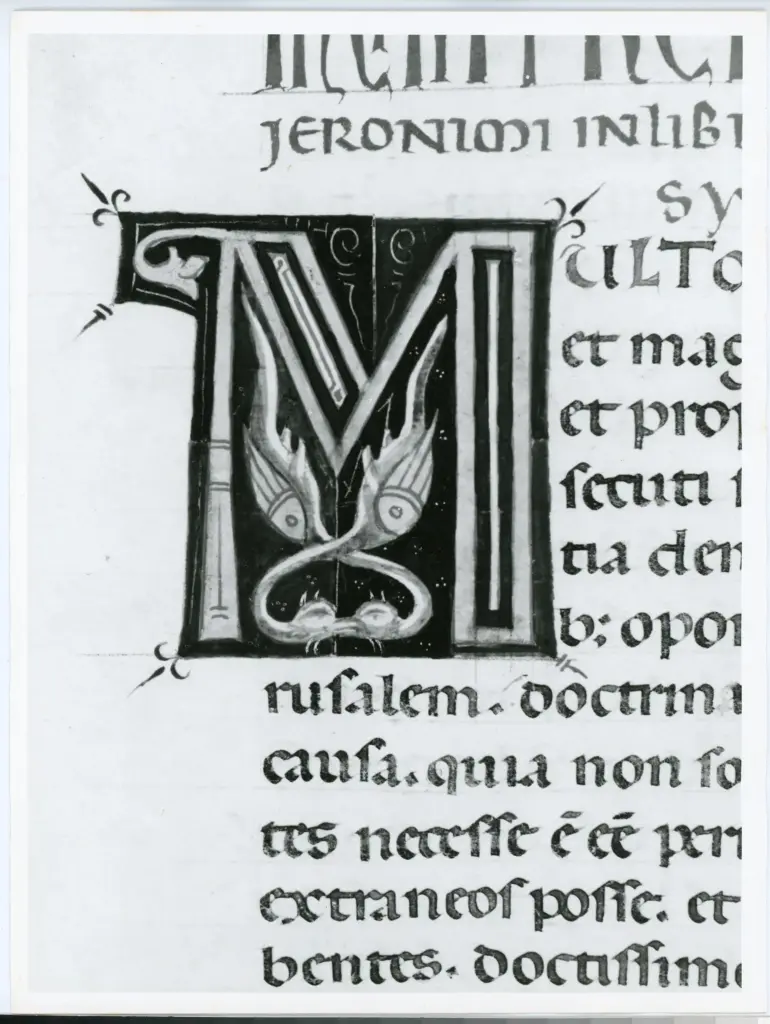 JERONIMI IN LIB
SY
M ULTO
et mag
et pro
secuti
tia den
b; opor
rusalem. doctrin
causa. quia non so
tes necesse ē eē per
extraneos posse. et
bentes. doctissim